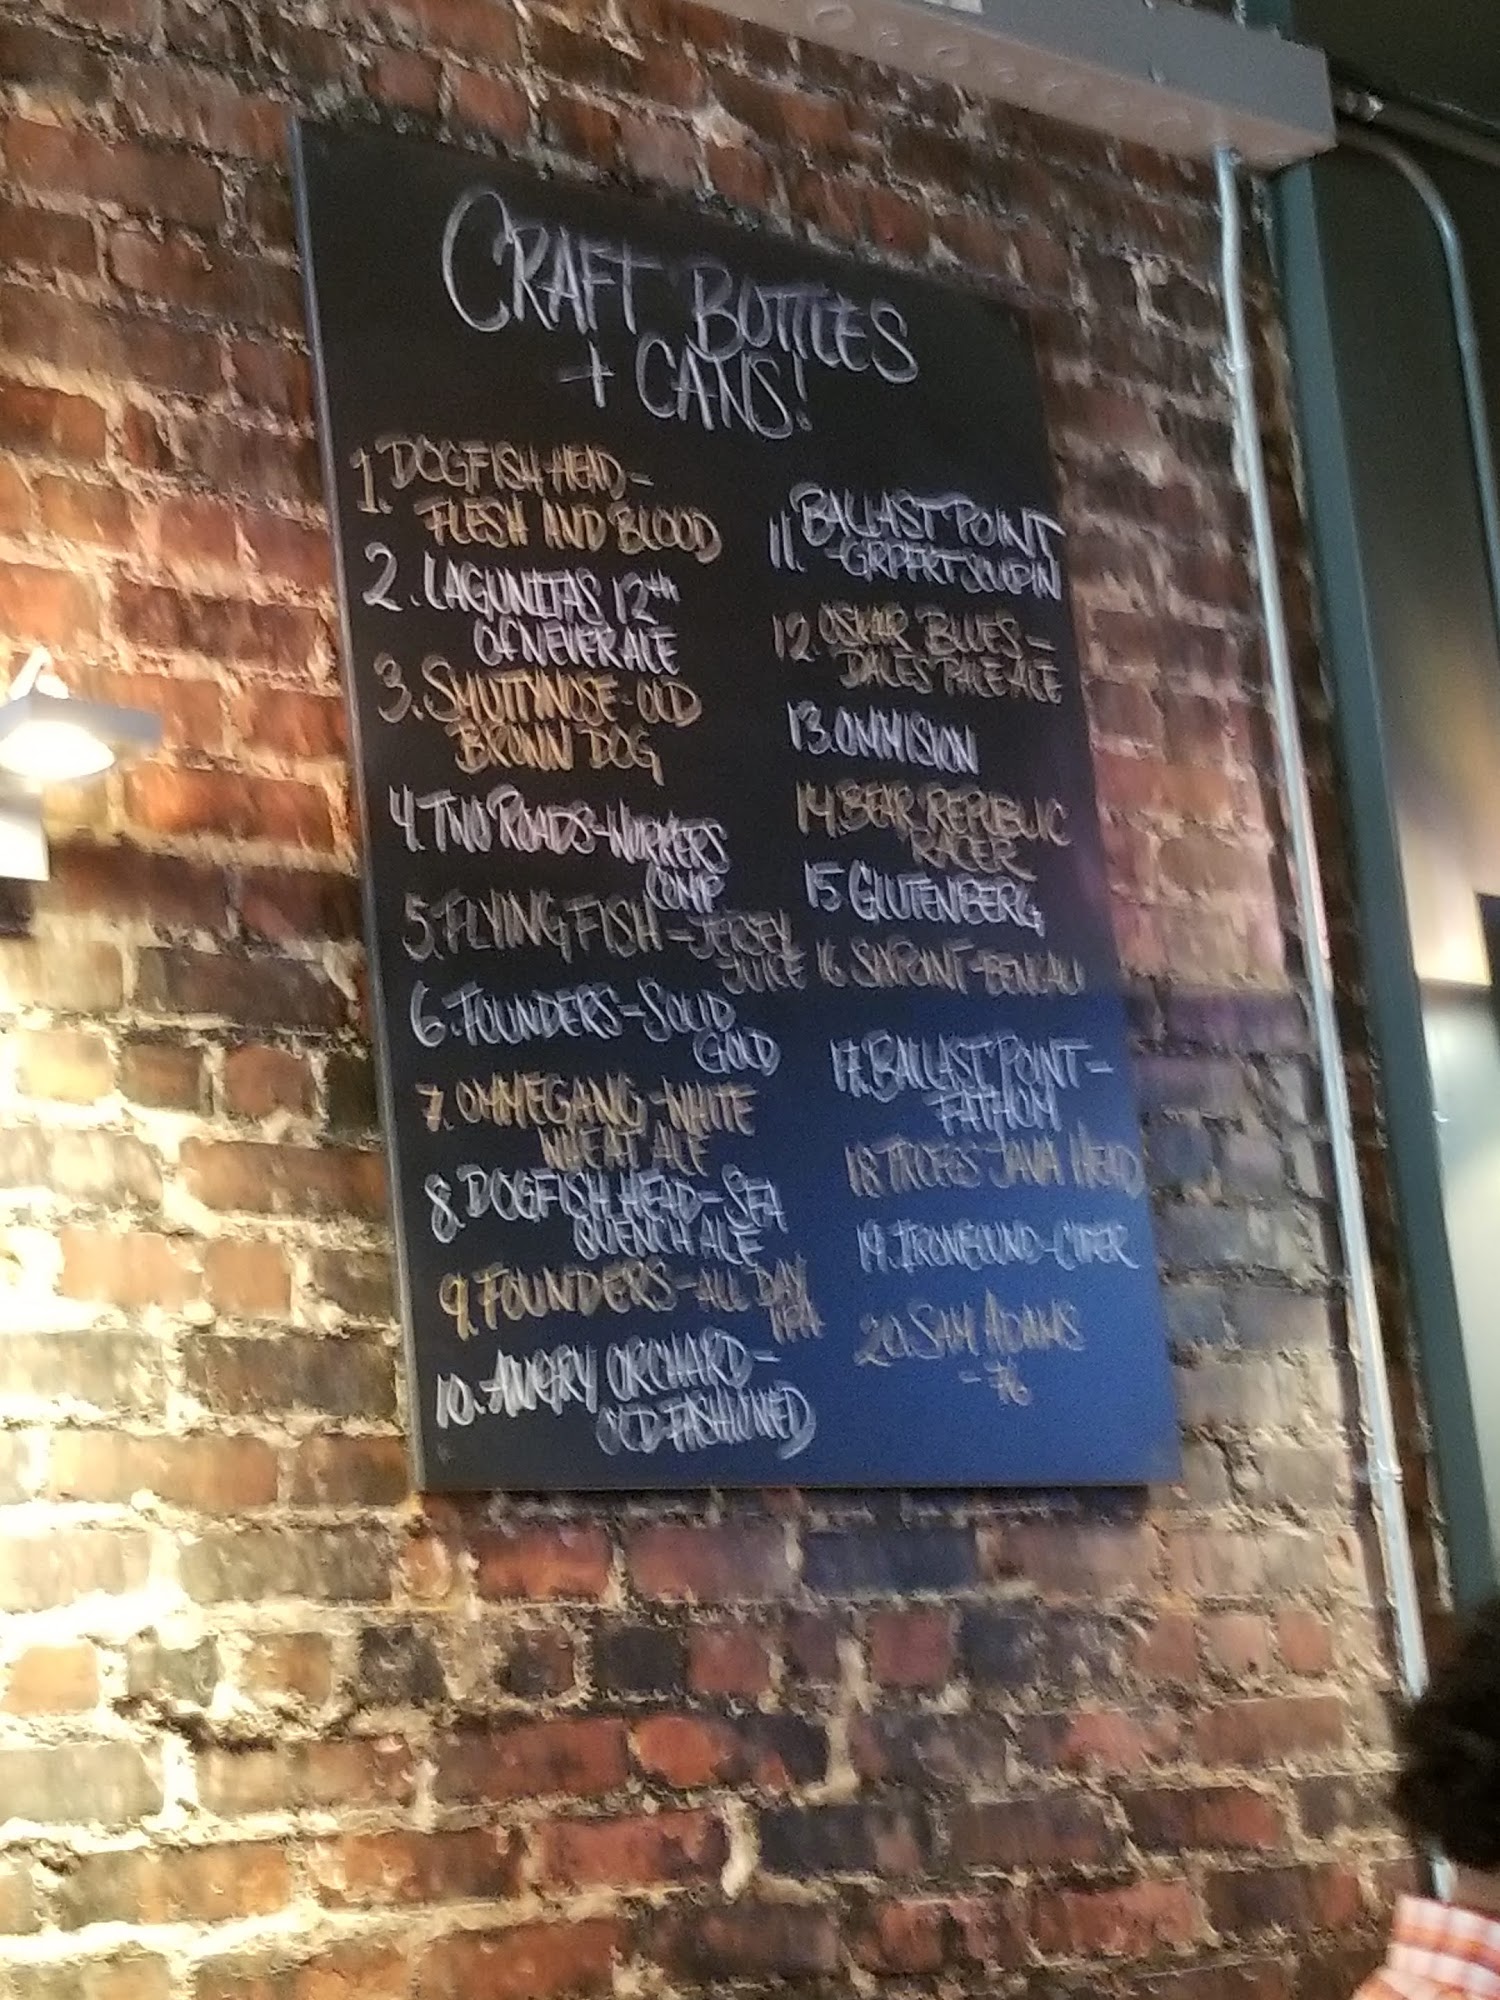 CRAFT BOTTLES
+ CANS!
1. DOGFISH HEAD -
FLESH AND BLOOD
2. LAGUNITAS 12th
OF NEVER ALE
3. SMUTTYNOSE - OLD
BROWN DOG
4. TWO ROADS - WORKERS
COMP
5. FLYING FISH - JERSEY
JUICE
6. FOUNDERS - SOLID
GOLD
7. OMMEGANG - WHITE
WHEAT ALE
8. DOGFISH HEAD - SEA
QUENCH ALE
9. FOUNDERS - ALL DAY
IPA
10. ANGRY ORCHARD -
OLD FASHIONED
11. BALLAST POINT
12. OSKAR BLUES -
DALES PALE ALE
13. OMMISION
14. BEAR REPUBLIC
RACER
15 GLUTENBERG
16 SIXPOINT - BENGALI
17. BALLAST POINT -
FATHOM
18 TROEGS JAVA HEAD
19. IRONBOUND - CIDER
20. SAM ADAMS
- 76